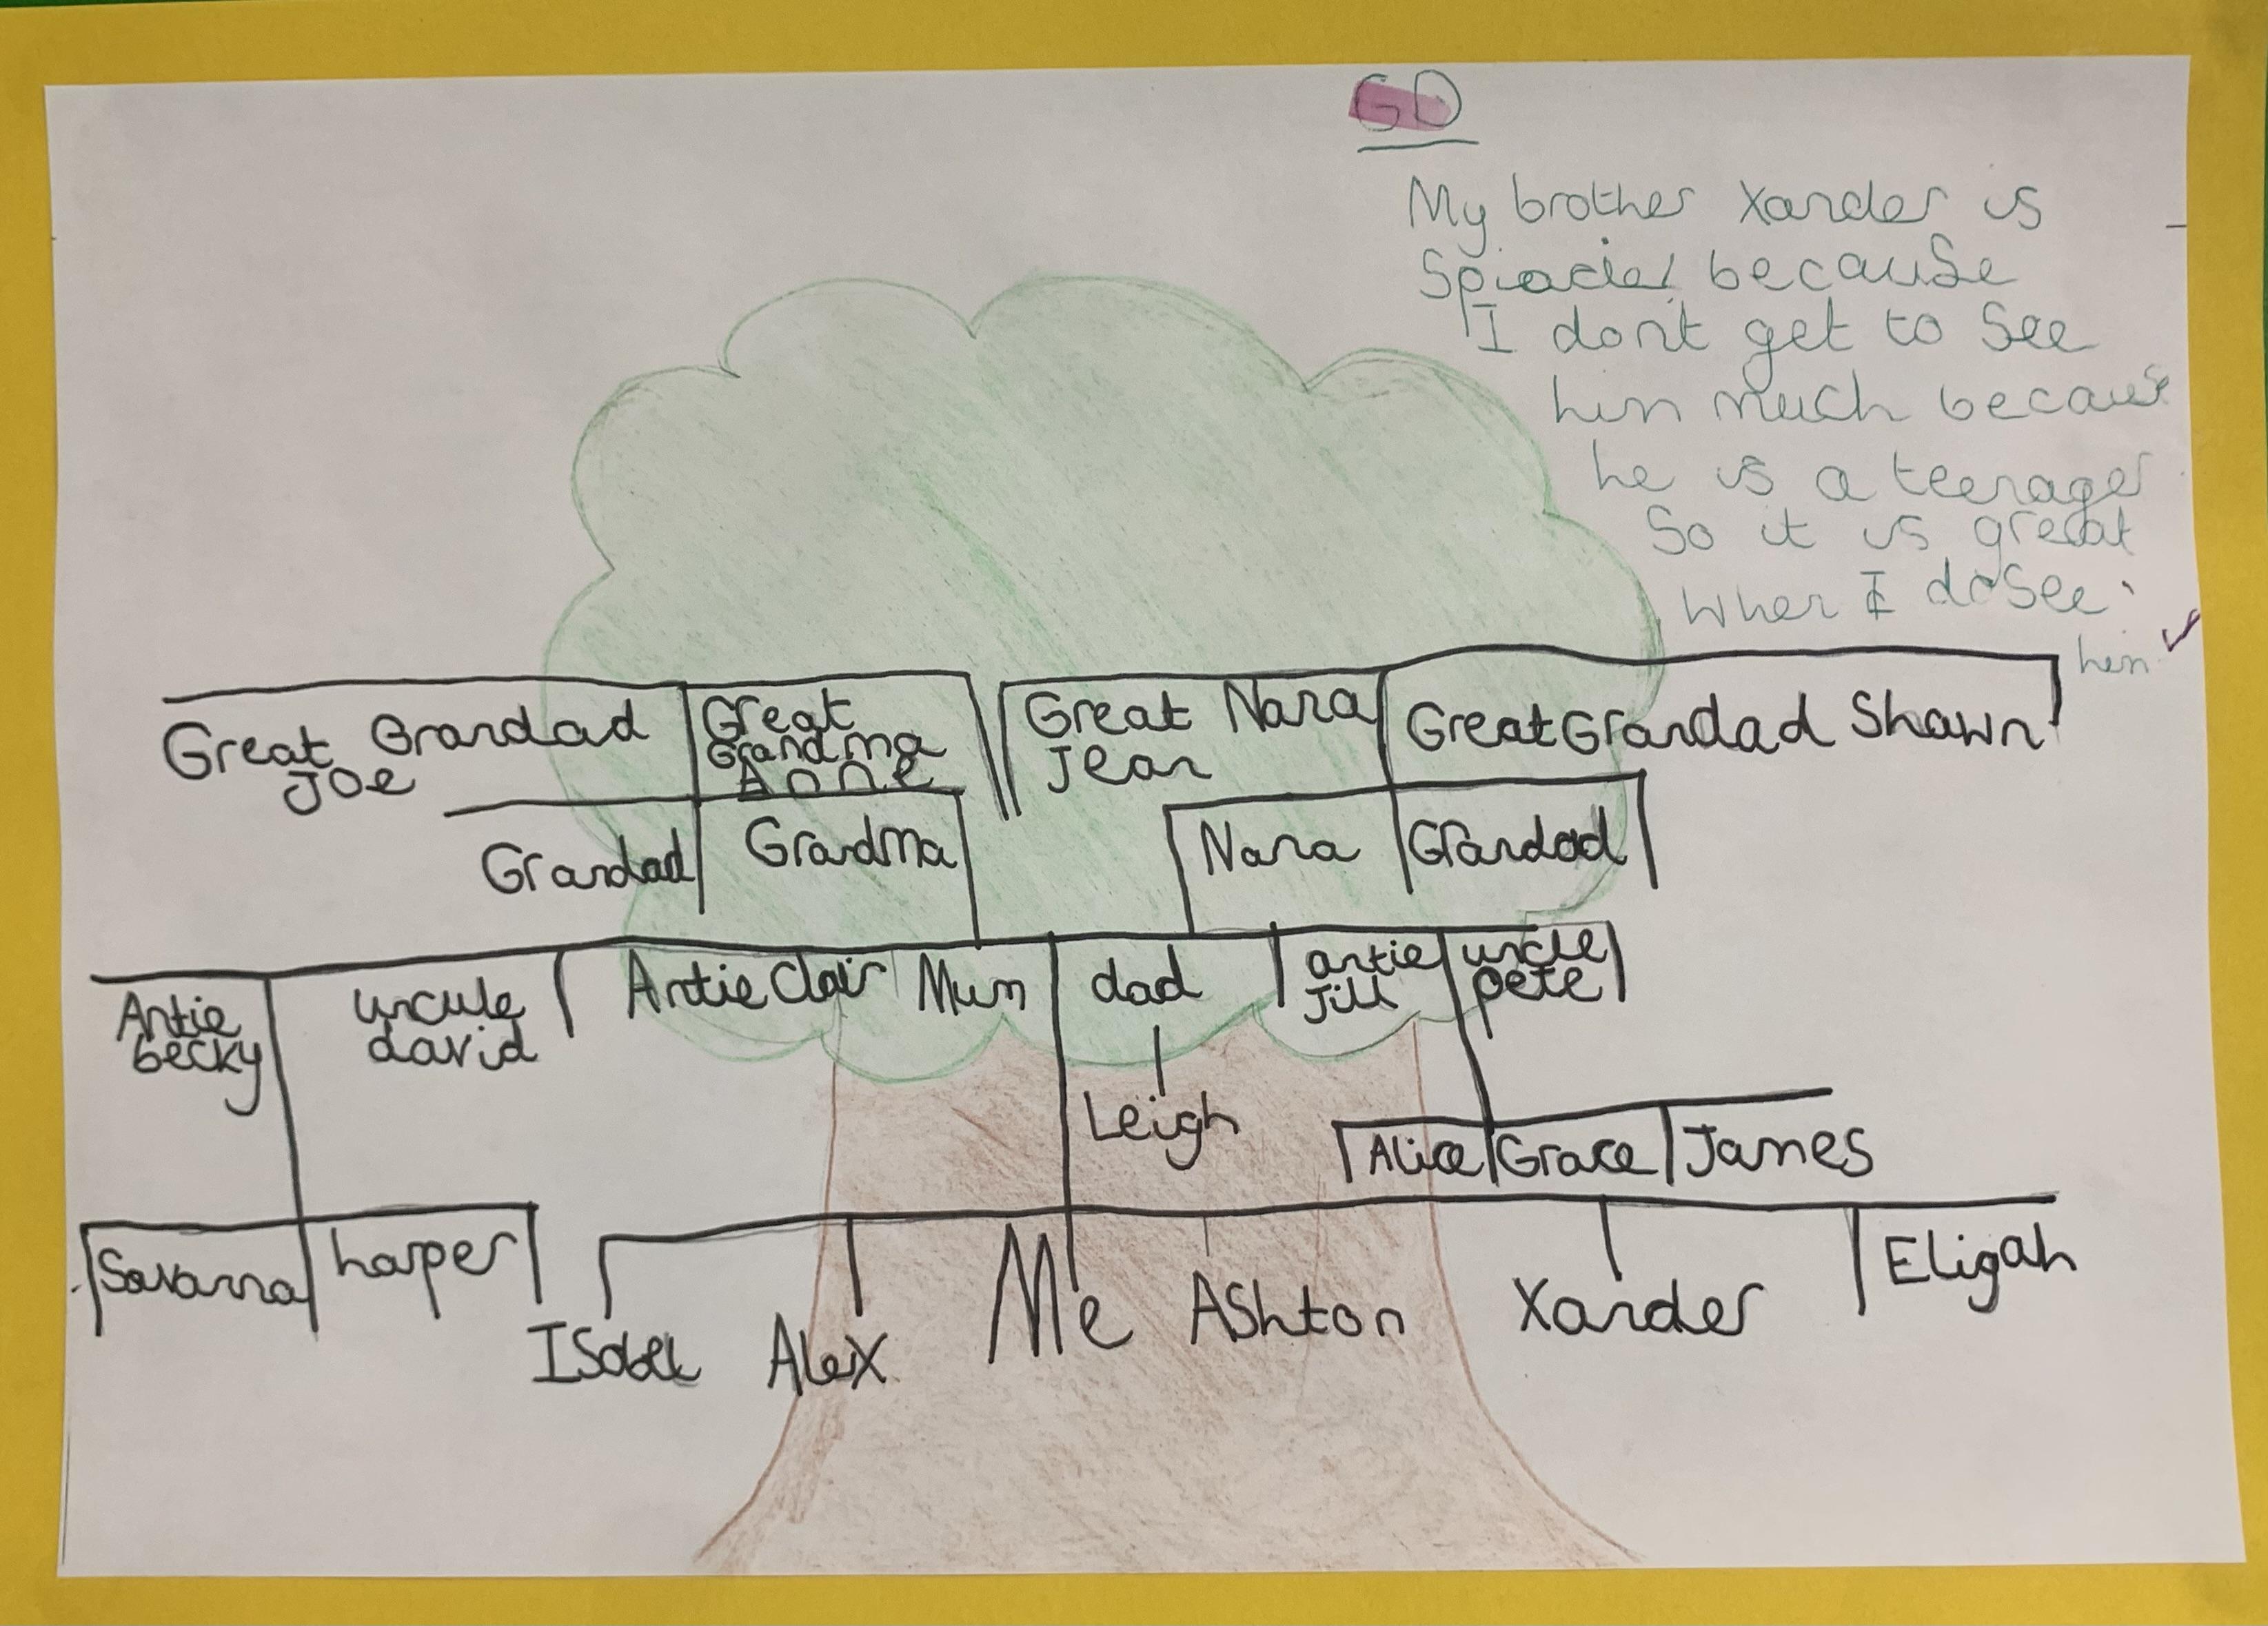 GD
My brother Xander is
Spiaciel because
I dont get to See
him much because
he is a teenager
So it is great
when I do See
him
Great Grandad
Joe
Great
Grandma
Anne
Great Nana
Jean
Great Grandad Shawn
Grandad
Grandma
Nana
Grandad
Antie
becky
uncule
david
Antie Clair
Mum
dad
antie
Jill
uncle
pete
Leigh
Alice
Grace
James
Savanna
harper
ISobel
Alex
Me
AShton
Xander
Eligah